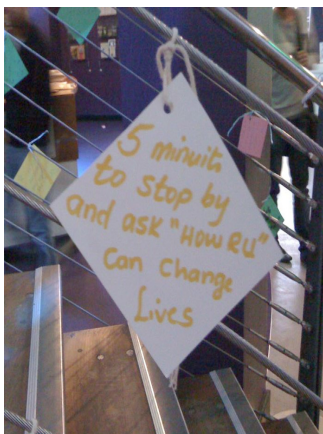 5 minuits
to stop by
and ask "HOW RU"
can change
Lives